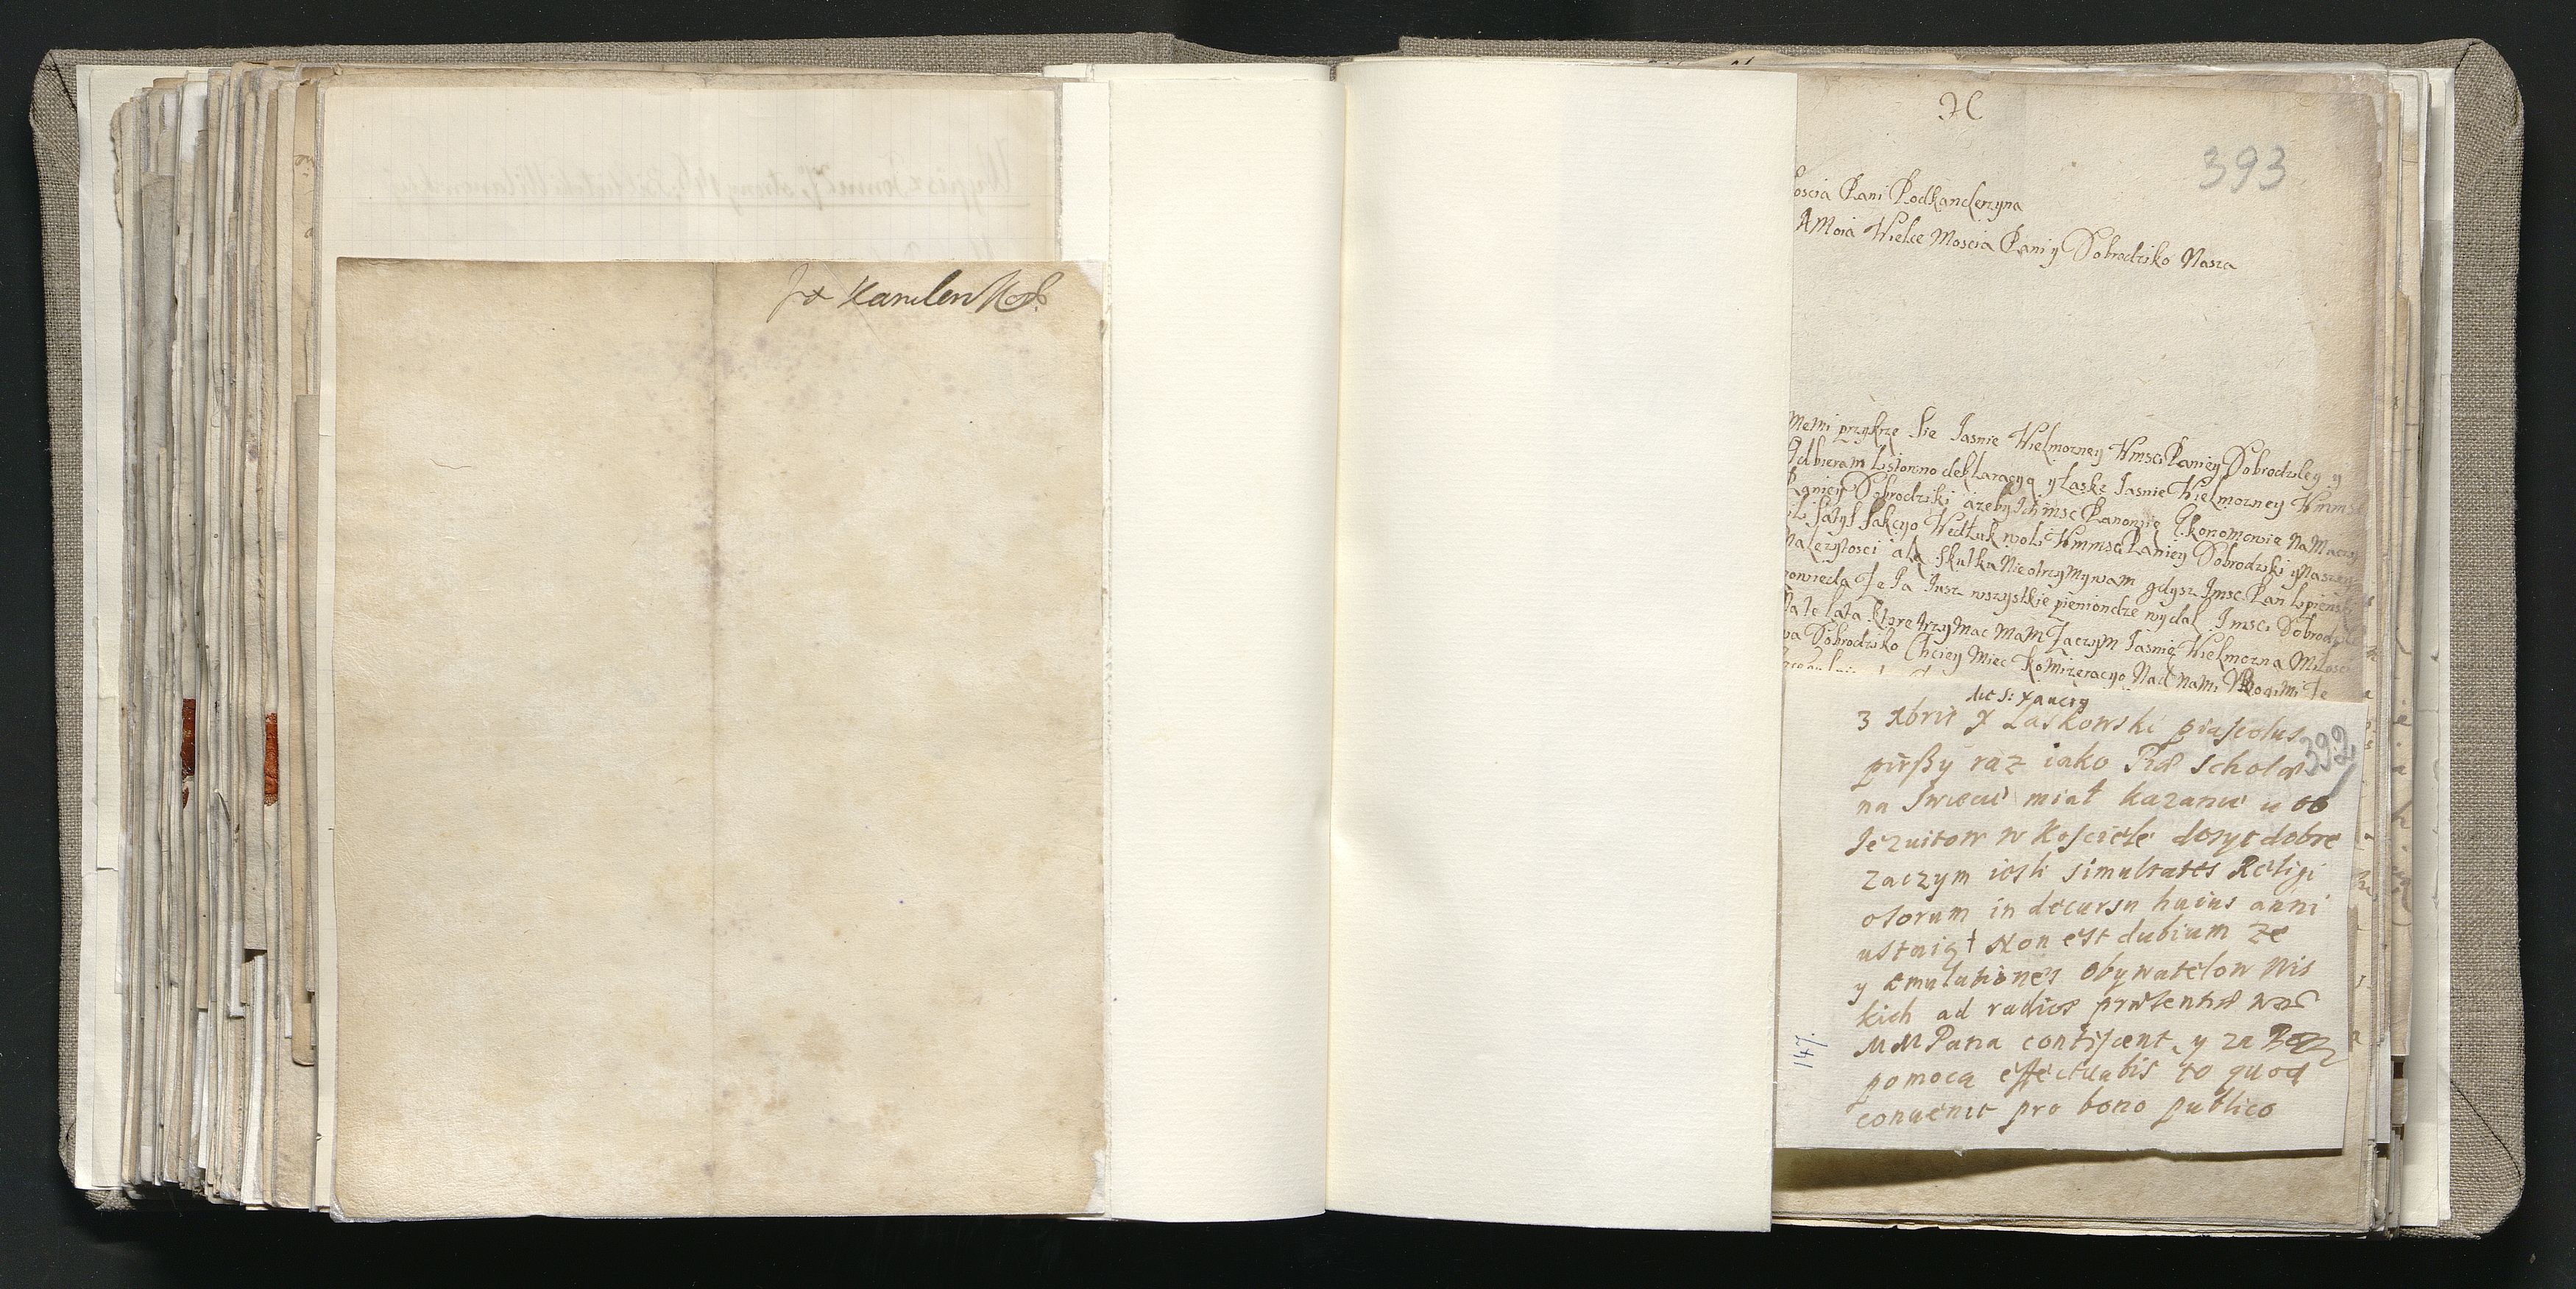 Kamlenski
393
oscia Pani Podkanclerzyna
A Moia Wielce Moscia Pani y Dobrodziko Nasza
przykrze sie Iasnie Wielmozney Wmsci Paniey Dobrodzieg y
Odbieram listowno deklaracyą y Laske Iasnie Wielmozney Wmmsc
Paniey Dobrodziki azeby Ich msc Panowie Ekonomowie Na
satysfakcyo Wedluk woli Wmmsci Paniey Dobrodziki y Naszey
nalezytosci ale skutka Nie otrzymywam gdysz Imsc Pan Lipienski
powieda Ze Ia Iusz wszystkie pieniondze wydal Imsci Dobrodzice
Na te lata Ktore trzymac Mam Zaczym Iasnie Wielmozna Milosci
wa Dobrodziko Chciey Miec Komizeracyo Nad Nami Vbogimi Ze
die S: Xaueri
3 Xbris X Laskowski
pirszy raz iako Piae scholae
392
na swiecie miał kazanie u OO
Iezuitow w kosciele dosyc dobre
zaczym iesli simultates Religi
osorum in decursu huius anni
ustaią Non est dubium ze
y emulationes obywatelow Nis
kich ad radios praesentiae
MM Pana conticent y za
pomocą effectuabis to quod
conuenit pro bono publico
147.